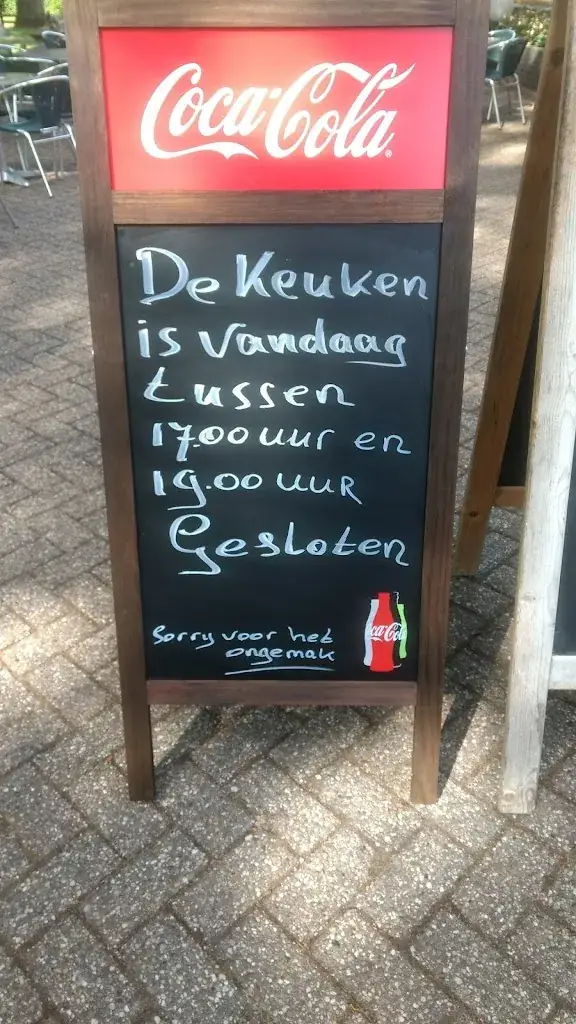 Coca-Cola
De Keuken
is vandaag
tussen
17.00 uur en
19.00 uur
Gesloten
Sorry voor het
ongemak
Coca-Cola